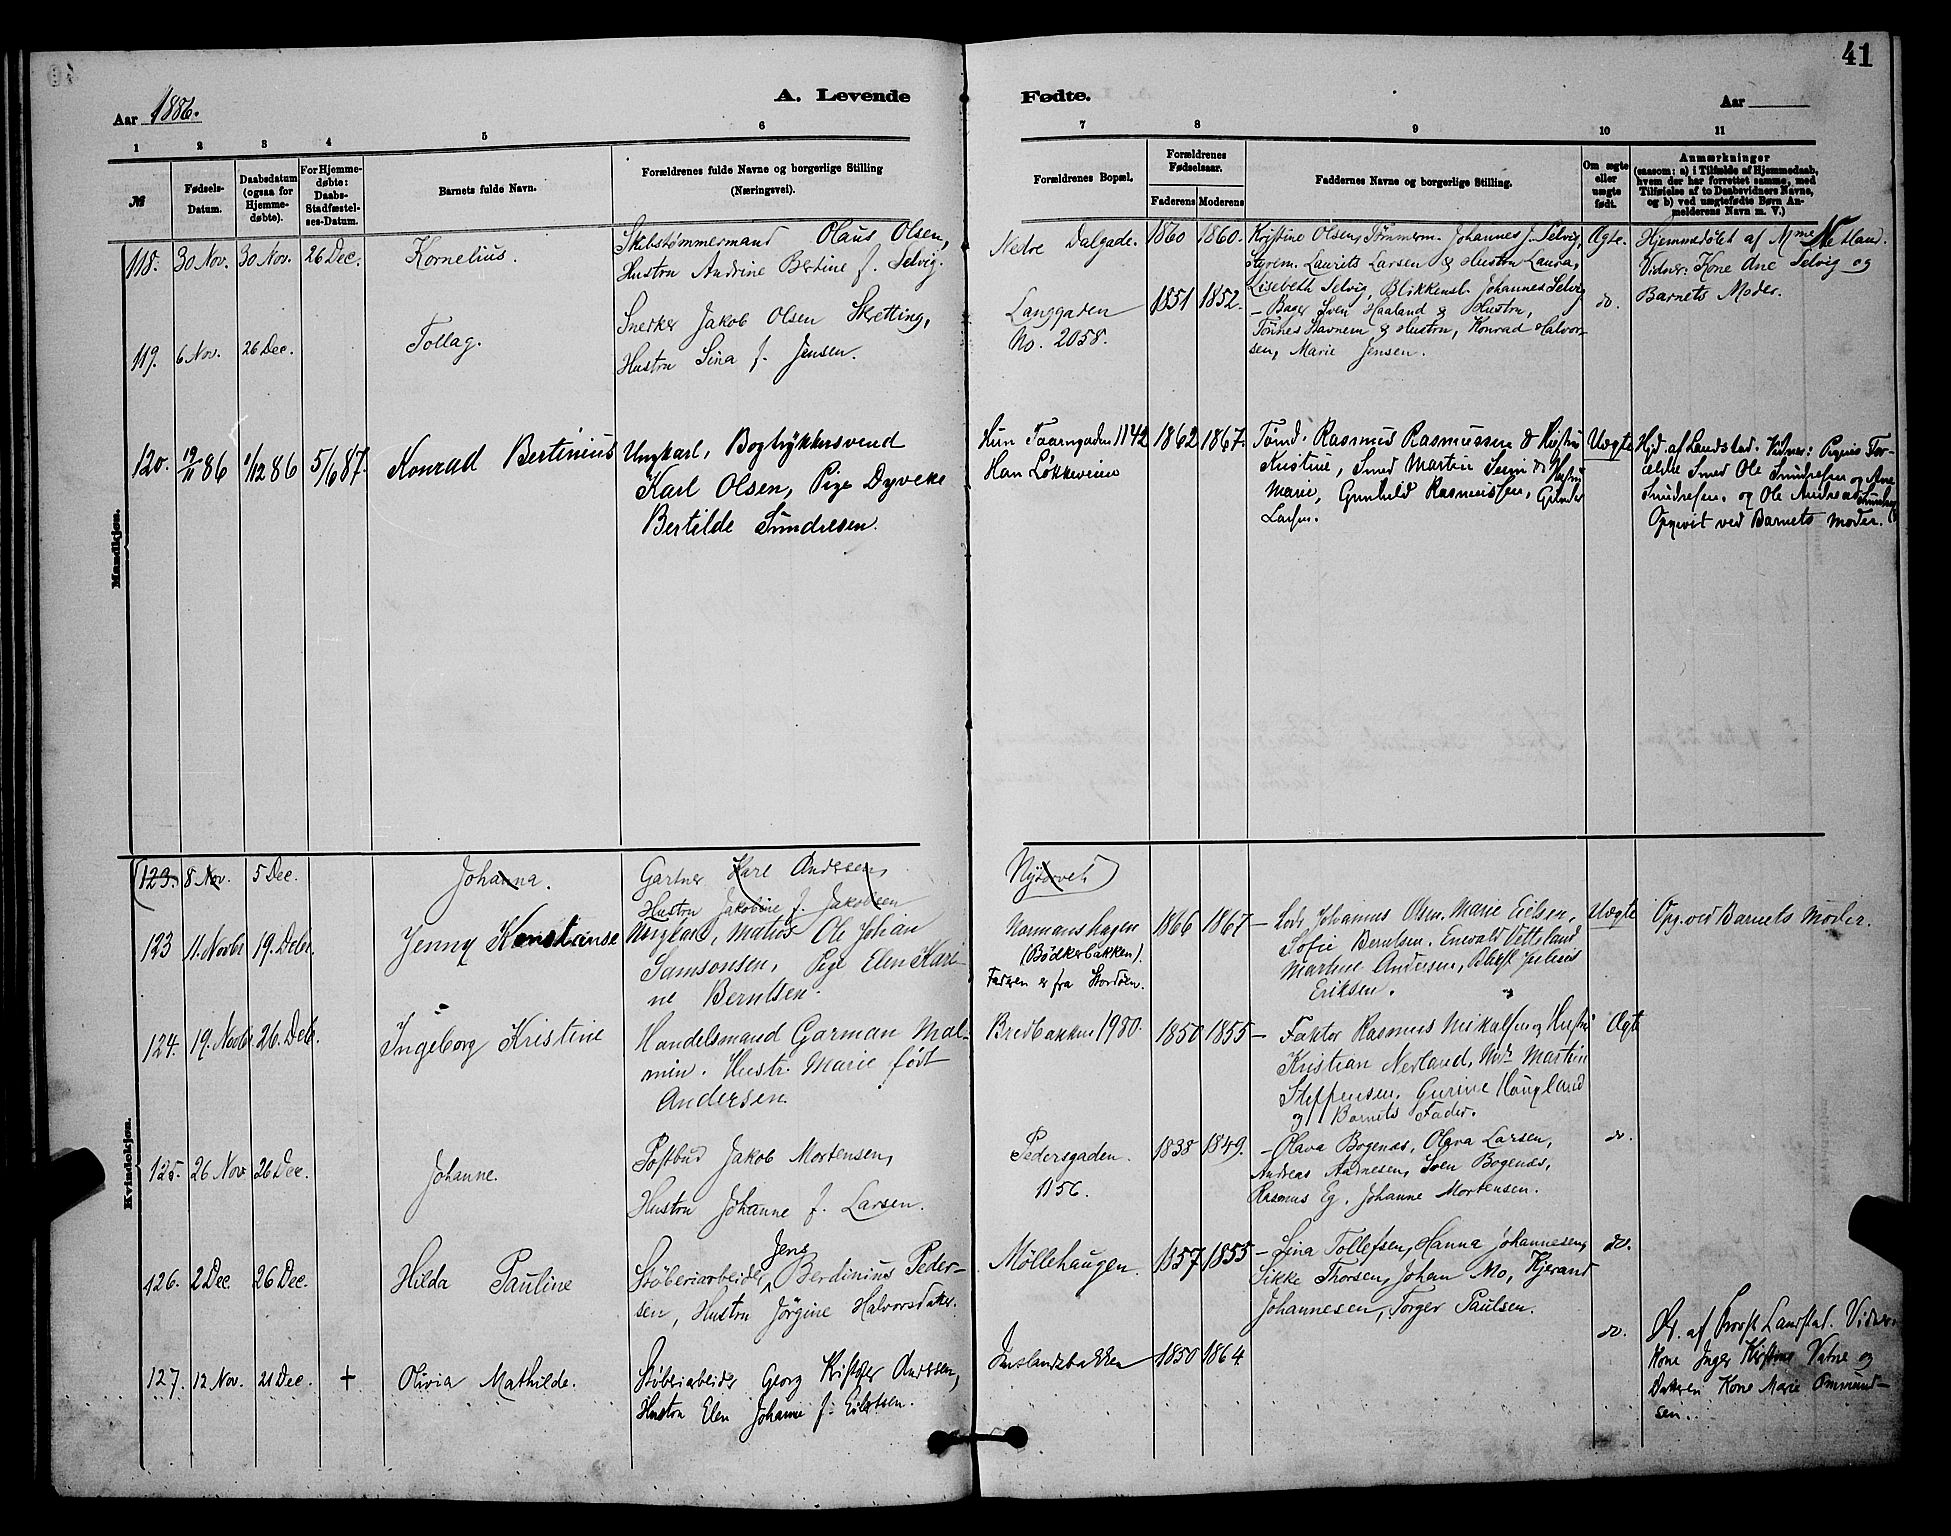 41
Aar 1886.
A. Levende Fødte.
Aar
1 2 3 4 5 6 7 8 9 10 11
№
Fødsels-
Datum.
Daabsdatum
(ogsaa for
Hjemme-
døbte).
For Hjemme-
døbte:
Daabs-
Stadfæstel-
ses-Datum.
Barnets fulde Navn.
Forældrenes fulde Navne og borgerlige Stilling
(Næringsvei).
Forældrenes Bopæl.
Forældrenes
Fødselsaar.
Faderens Moderens
Faddernes Navne og borgerlige Stilling.
Om ægte
eller
uægte
født.
Anmærkninger
(saasom: a) i Tilfælde af Hjemmedaab,
hvem der har forrettet samme, med
Tilføielse af to Daabsvidners Navne,
og b) ved uægtefødte Børn An-
melderens Navn m. V.)
Mandkjøn.
118. 30 Nov. 30 Nov. 26 Dec. Kornelius.
Skibstømmermand Olaus Olsen,
Hustru Andrine Bertine f. Selvig.
Nedre Dalgade. 1860 1860.
Kristine Olsen, Tømmerm. Johannes J. Selvig,
Styrem. Laurits Larsen & Hustru Laura,
Lisebeth Selvig, Blikkensl. Johannes Selvig
Ægte.
Hjemmedøbt af Mme Netland.
Vidner: Kone Ane Selvig og
Barnets Moder.
119. 6 Nov. 26 Dec. Tollag.
Snerker Jakob Olsen Skretting,
Hustru Sina f. Jensen.
Langgaden
No. 2058.
1851 1852.
– Bager Sven Haaland & Hustru,
Tønnes Stavnem & Hustru, Konrad Halvor-
sen, Marie Jensen.
do.
120. 19/11 86 1/12 86 5/6 87. Konrad Bertinius
Ungkarl, Bogtrykkersvend
Karl Olsen, Pige Dyveke
Bertilde Sundresen.
Hun Taarngaden 1142
Han Løkkeveien
1862 1867.
Tømd. Rasmus Rasmussen & Hustru
Kristine, Smed Martin & Hustru
Marie, Gunhild Rasmussen, Gunder
Larsen.
Uægte
Hjd. af Landstad. Vidner: Pigens For-
ældre Smed Ole Smidresen og Ane
Smidresen. og Ole Andreas
Opgivet ved Barnets Moder.
Kvindekjøn.
123. 8 Nov. 5 Dec. Johanna.
Gartner Karl Andersen,
Hustru Jakobine f. Jakobsen
Nytorvet
123 11. Novbr 19. Debr. Jenny Konstanse
Ungkarl, Matros Ole Johan
Samsonsen, Pige Elen Kari-
ne Berntsen.
Normanshagen
(Bødkerbakken).
Faderen er fra Stordøen.
1866 1867
– Lods Johannes Olsen, Marie Eilsen,
Sofie Berntsen. Enevald Vetteland
Martine Andersen, Julius
Eriksen.
Uægte
Opg. ved Barnets Moder.
124. 19. Novbr 26. Debr. Ingeborg Kristine
Handelsmand Garman Mal-
min. Hustr. Marie født
Andersen
Bredbakken 1980. 1850 1855
– Faktor Rasmus Mikalsen og Hustru
Kristian Nerland, Martin
Steffensen, Gurine Haugland
og Barnets Fader.
Ægt
125. 26 Nov. 26 Dec. Johanne.
Postbud Jakob Mortensen,
Hustru Johanne f. Larsen.
Pedersgaden.
1156.
1838 1849.
– Olava Bogenæs, Olava Larsen,
Andreas Aarnesen, Sven Bogenæs,
Rasmus Eg, Johanne Mortensen.
do.
126. 2 Dec. 26 Dec. Hilda Pauline
Jens
Støberiarbeider, Berdinius Peder-
sen, Hustru Jørgine Halvorsdatter.
Møllehaugen. 1857 1855
– Lina Tollefsen, Hanna Johannesen,
Sikke Thorsen, Johan Mo, Kjerand
Johannesen, Torger Paulsen.
do.
127. 12 Nov. 21 Dec. + Olivia Mathilde.
Støberiarbeider Georg Kristoffer Andersen,
Hustru Elen Johanne f. Eilertsen.
Jorslandsbakken 1850 1864
do.
Dt. af Provst Landstad. Vidner:
Kone Inger Kirstine Vatne og
Kone Marie Ommund-
sen.